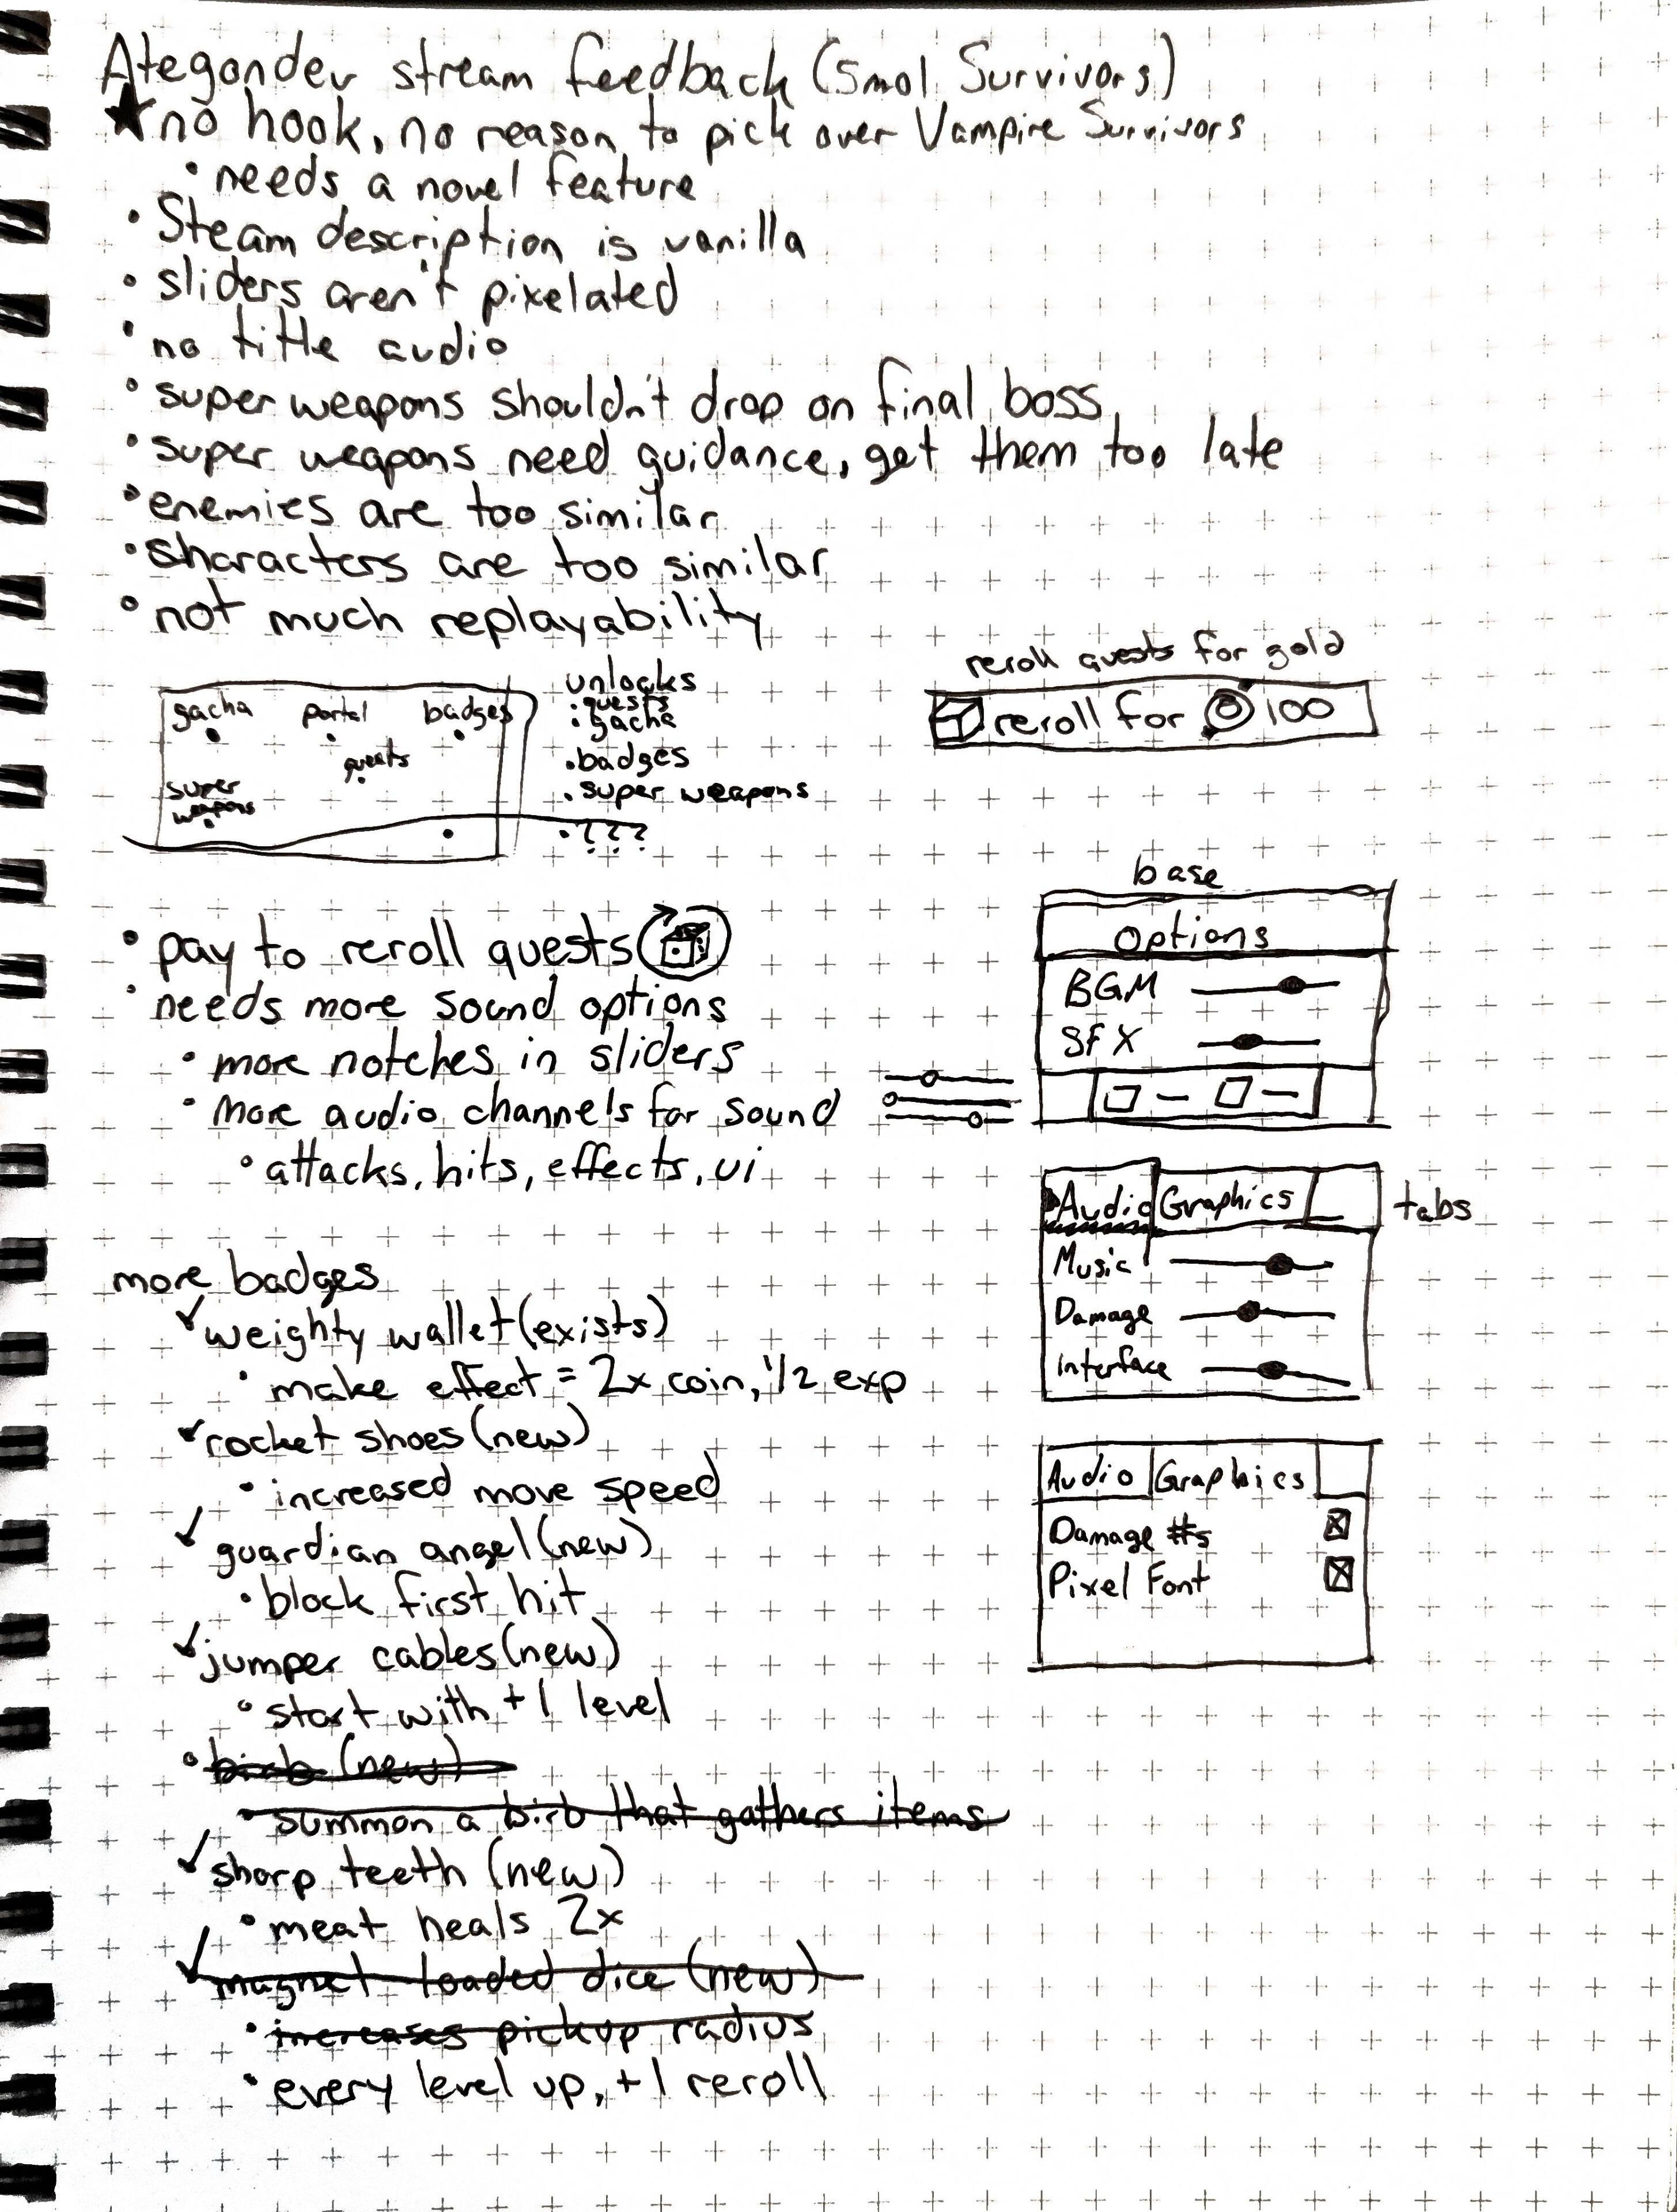 Ategondev stream feedback (Smol Survivors)
★no hook, no reason to pick over Vampire Survivors
• needs a novel feature
• Steam description is vanilla
• sliders aren't pixelated
• no title audio
• super weapons shouldn't drop on final boss
• super weapons need guidance, get them too late
• enemies are too similar
• characters are too similar
• not much replayability
gacha portal badges
quests
super
weapons
unlocks
• quests
• gacha
• badges
• super weapons
• ???
reroll quests for gold
reroll for 100
• pay to reroll quests
• needs more sound options
• more notches in sliders
• more audio channels for sound
• attacks, hits, effects, ui
base
Options
BGM
SFX
Audio Graphics
tabs
Music
Damage
Interface
Audio Graphics
Damage #s
Pixel Font
more badges
✓ weighty wallet (exists)
• make effect = 2x coin, 1/2 exp
✓ rocket shoes (new)
• increased move speed
✓ guardian angel (new)
• block first hit
✓ jumper cables (new)
• start with +1 level
• birb (new)
• summon a birb that gathers items
✓ sharp teeth (new)
• meat heals 2x
✓ magnet loaded dice (new)
• increases pickup radius
• every level up, +1 reroll